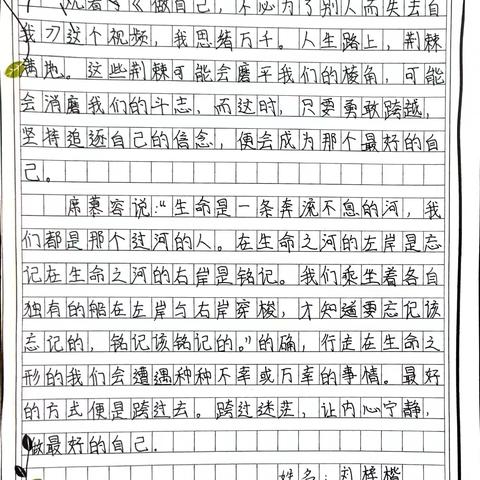 观看《做自己，不必为了别人而失去自
我》这个视频，我思绪万千。人生路上，荆棘
满地。这些荆棘可能会磨平我们的棱角，可能
会消磨我们的斗志，而这时，只要勇敢跨越，
坚持追逐自己的信念，便会成为那个最好的自
己。
席慕容说："生命是一条奔流不息的河，我
们都是那个过河的人。在生命之河的左岸是忘
记在生命之河的右岸是铭记。我们乘坐着各自
独有的船在左岸与右岸穿梭，才知道要忘记该
忘记的，铭记该铭记的。"的确，行走在生命之
形的我们会遭遇种种不幸或万幸的事情。最好
的方式便是跨过去。跨过迷茫，让内心宁静，
做最好的自己.
姓名：刘梓楷